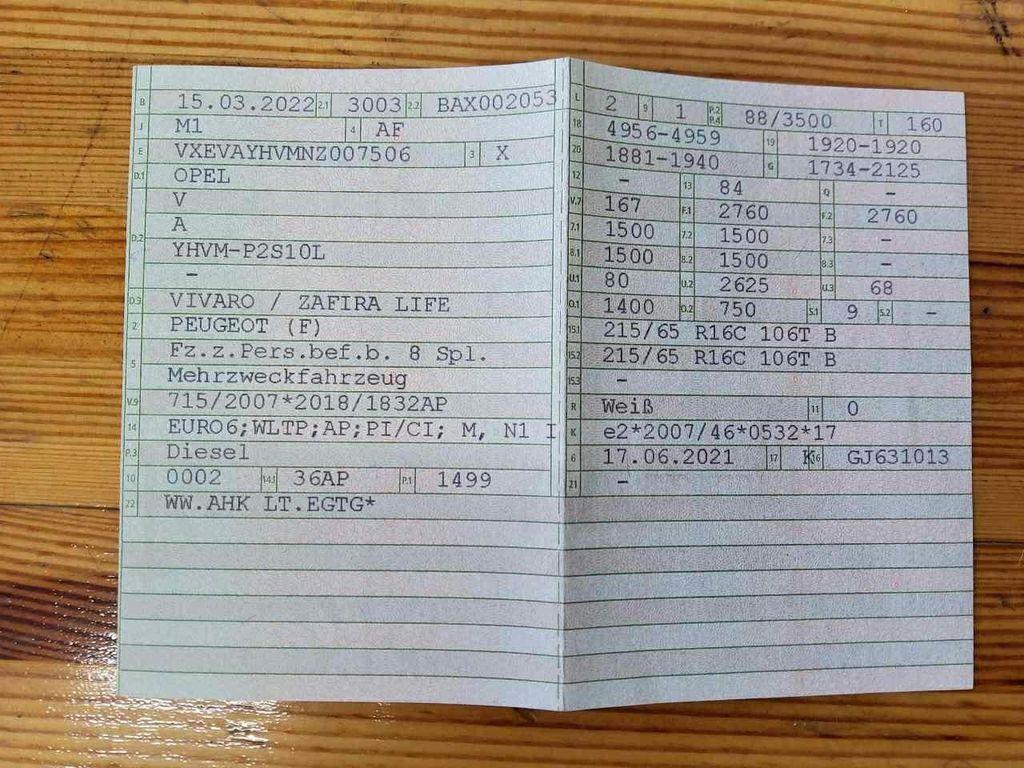 B 15.03.2022 2.1 3003 2.2 BAX002053
J M1 4 AF
E VXEVAYHVMNZ007506 3 X
D.1 OPEL
V
A
D.2
YHVM-P2S10L
–
D.3 VIVARO / ZAFIRA LIFE
2 PEUGEOT (F)
5 Fz.z.Pers.bef.b. 8 Spl.
Mehrzweckfahrzeug
V.9 715/2007*2018/1832AP
14 EURO6;WLTP;AP;PI/CI; M, N1 I
P.3 Diesel
10 0002 14.1 36AP P.1 1499
22 WW.AHK LT.EGTG*
L 2 9 1 P.2 P.4 88/3500 T 160
18 4956-4959 19 1920-1920
20 1881-1940 G 1734-2125
12 – 13 84 Q –
V.7 167 F.1 2760 F.2 2760
7.1 1500 7.2 1500 7.3 –
8.1 1500 8.2 1500 8.3 –
U.1 80 U.2 2625 U.3 68
O.1 1400 O.2 750 S.1 9 S.2 –
15.1 215/65 R16C 106T B
15.2 215/65 R16C 106T B
15.3 –
R Weiß 11 0
K e2*2007/46*0532*17
6 17.06.2021 17 K 16 GJ631013
21 –